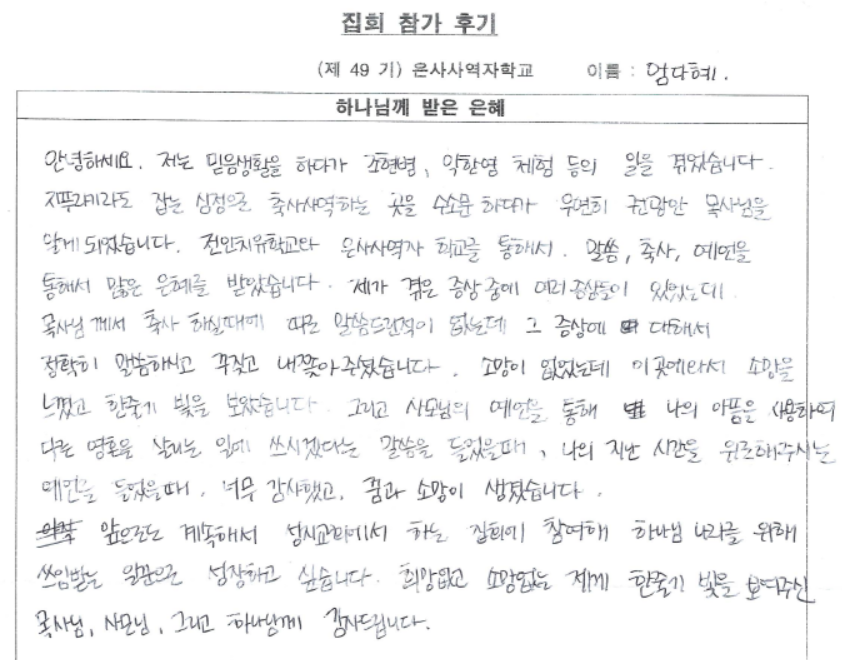 집회 참가 후기
(제 49 기) 은사사역자학교 이름 : 엄다혜.
하나님께 받은 은혜
안녕하세요. 저는 믿음생활을 하다가 조현병, 악한영 체험 등의 일을 겪었습니다.
지푸라기라도 잡는 심정으로 축사사역하는 곳을 수소문 하다가 우연히 권광안 목사님을
알게 되었습니다. 전인치유학교와 은사사역자 학교를 통해서. 말씀, 축사, 예언을
통해서 많은 은혜를 받았습니다. 제가 겪은 증상 중에 여러 증상들이 있었는데
목사님 께서 축사 하실때에 따로 말씀드린적이 없는데 그 증상에 대해서
정확히 말씀하시고 꾸짖고 내쫓아주셨습니다. 소망이 없었는데 이곳에와서 소망을
느꼈고 한줄기 빛을 보았습니다. 그리고 사모님의 예언을 통해 나의 아픔을 사용하여
다른 영혼을 살리는 일에 쓰시겠다는 말씀을 들었을때, 나의 지난 시간을 위로해주시는
예언을 들었을때, 너무 감사했고, 꿈과 소망이 생겼습니다.
앞으로도 계속해서 성시교회에서 하는 집회에 참여해 하나님 나라를 위해
쓰임받는 일꾼으로 성장하고 싶습니다. 희망없고 소망없는 제게 한줄기 빛을 보여주신
목사님, 사모님, 그리고 하나님께 감사드립니다.